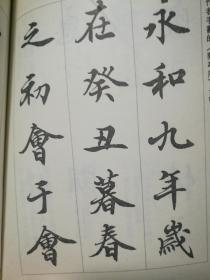 永和九年歲
在癸丑暮春
之初會于會